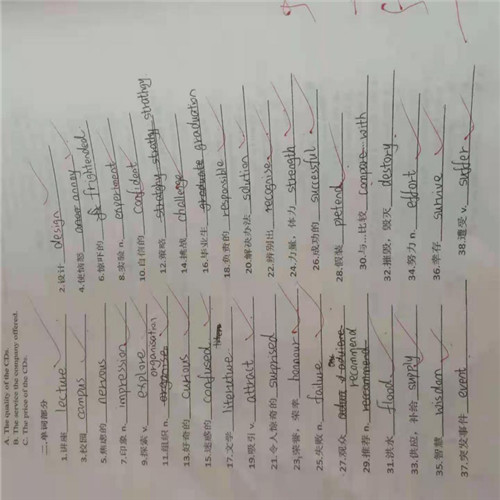 A. The quality of the CDs.
B. The service the company offered.
C. The price of the CDs.
二.单词部分
1.讲座 lecture 2.设计 design
3.校园 campus 4.使愤怒 annoy
5.焦虑的 nervous 6.惊吓的 frightended
7.印象 n. impression 8.实验 n. experiment
9.探索 v. explore 10.自信的 confident
11.组织 n. organise organisation 12.策略 strategy stratly strathgy
13.好奇的 curious 14.挑战 challenge
15.迷惑的 confused 16.毕业生 graduate graduation
17.文学 literature 18.负责的 responsible
19.吸引 v. attract 20.解决办法 solution
21.令人惊奇的 surprised 22.辨别出 recognise
23.荣誉，荣幸 honour 24.力量，体力 strength
25.失败 n. failure 26.成功的 successful
27.观众 28.假装 pretend
29.推荐 n. recommend recommend 30.与...比较 compare with
31.洪水 flood 32.摧毁，毁灭 destory
33.供应，补给 supply 34.努力 n. effort
35.智慧 wisdom 36.幸存 survive
37.突发事件 event 38.遭受 v. suffer